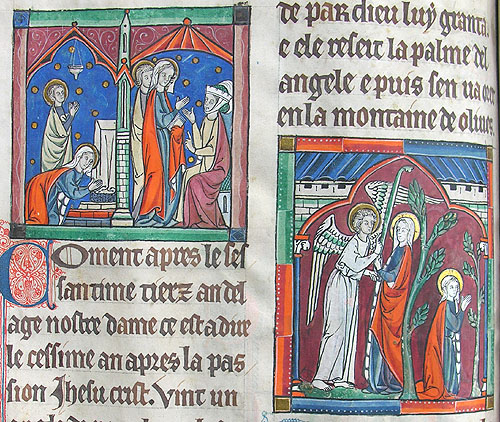 Coment apres le ses
santime tierz an del
age nostre dame ce est a dire
le cessime an apres la pas
sion Jhesu crist. Vint un
de par dieu luy granta
e ele reseit la palme del
angele e puis sen ua
en la montaine de oliues